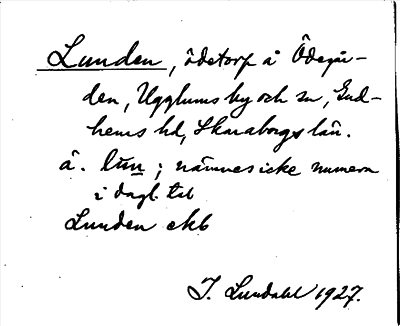 Lunden, ödetorp å Ödegår-
den, Ugglums by och sn, Gud-
hems hd, Skaraborgs län.
å. lun; nämnes icke numera
i dagl. tal
Lunden ekb
I. Lundahl 1927.